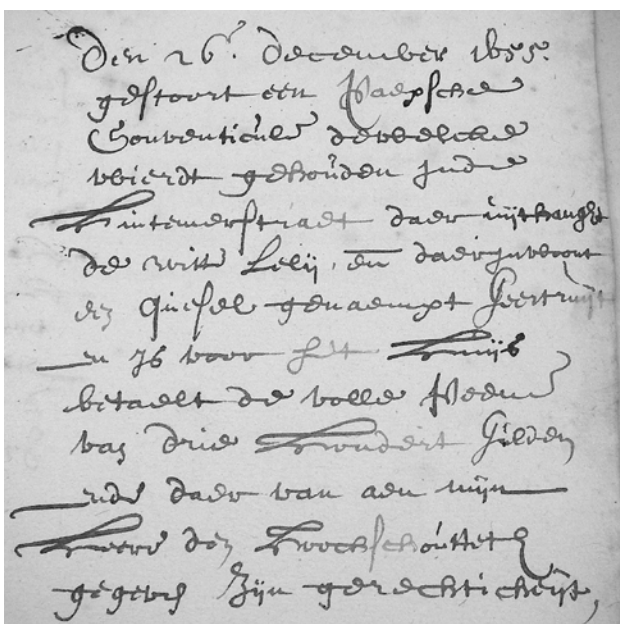 Den 26. December 1655.
gestoort een Paepsche
Conventicule dewelcke
wierdt gehouden inde
daer uijthanght
de witte Lelij, en daer inwoont
een Quesel genaempt Geertruijt
en is voor het Huijs
betaelt de volle Peene
van drie Hondert Gilden
ende daer van aen mijn
Heere den Hoochschouttet
gegeven zijn gerechticheijt,